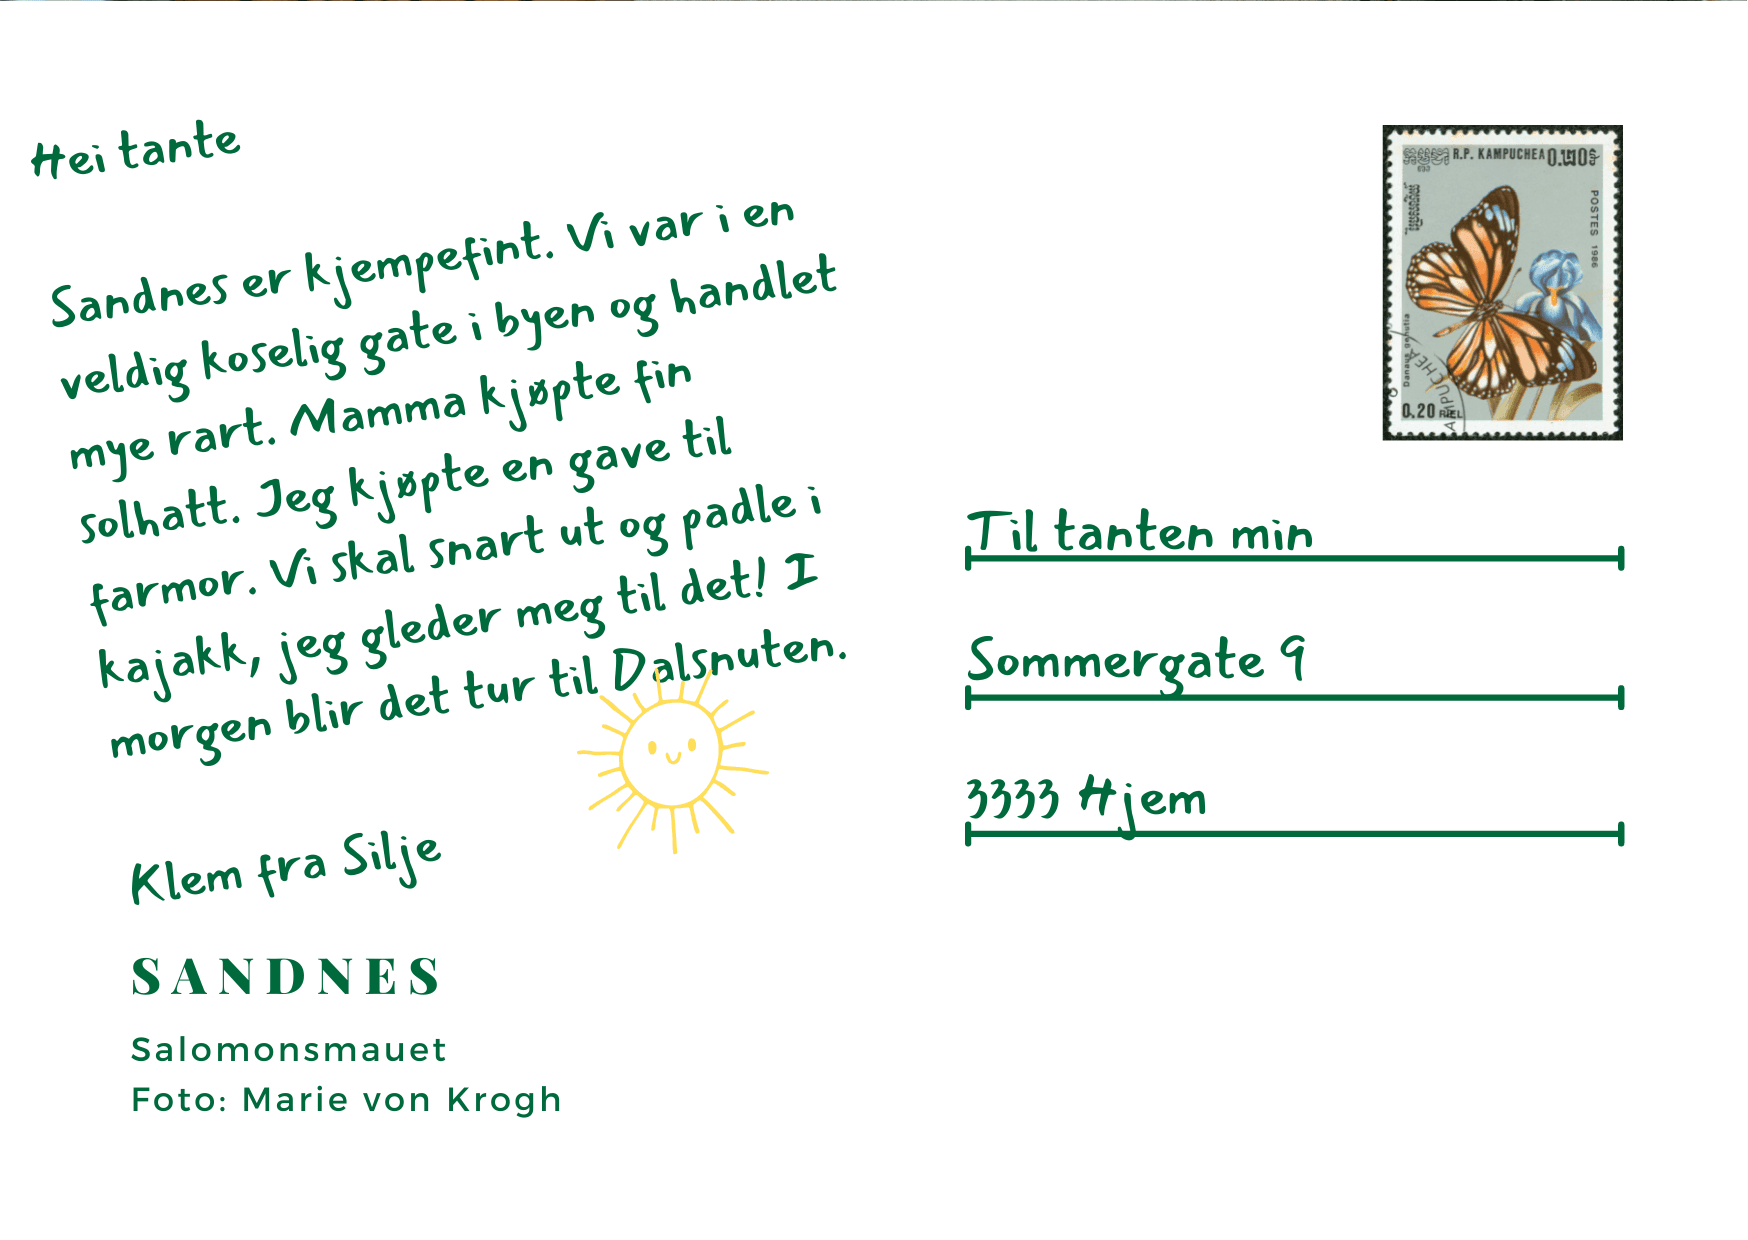 Hei tante
Sandnes er kjempefint. Vi var i en
veldig koselig gate i byen og handlet
mye rart. Mamma kjøpte fin
solhatt. Jeg kjøpte en gave til
farmor. Vi skal snart ut og padle i
kajakk, jeg gleder meg til det! I
morgen blir det tur til Dalsnuten.
Klem fra Silje
SANDNES
Salomonsmauet
Foto: Marie von Krogh
R.P. KAMPUCHEA
POSTES 1986
Danaus genutia
0.20 RIEL
Til tanten min
Sommergate 9
3333 Hjem